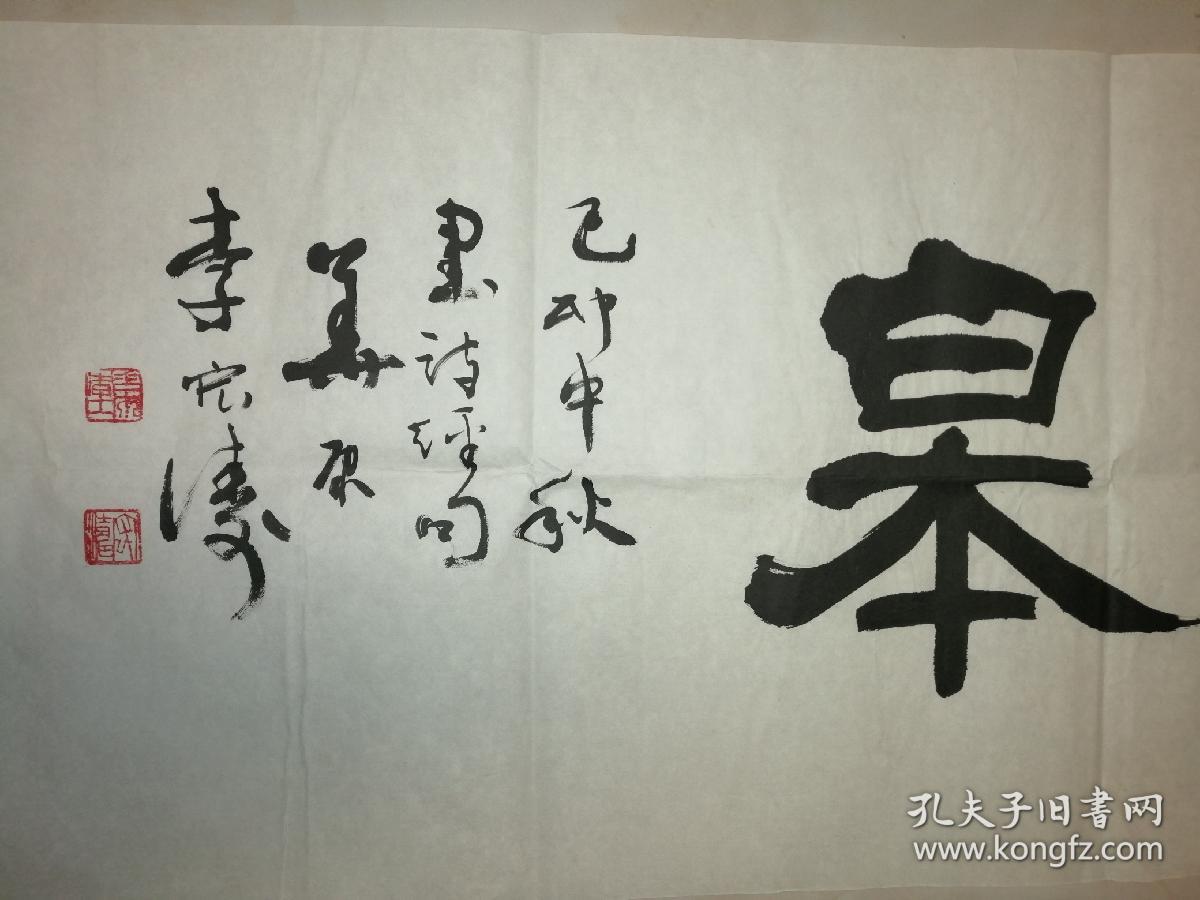 皋
己卯中秋
书诗经句
华原
李宏涛
孔夫子旧书网
www.kongfz.com